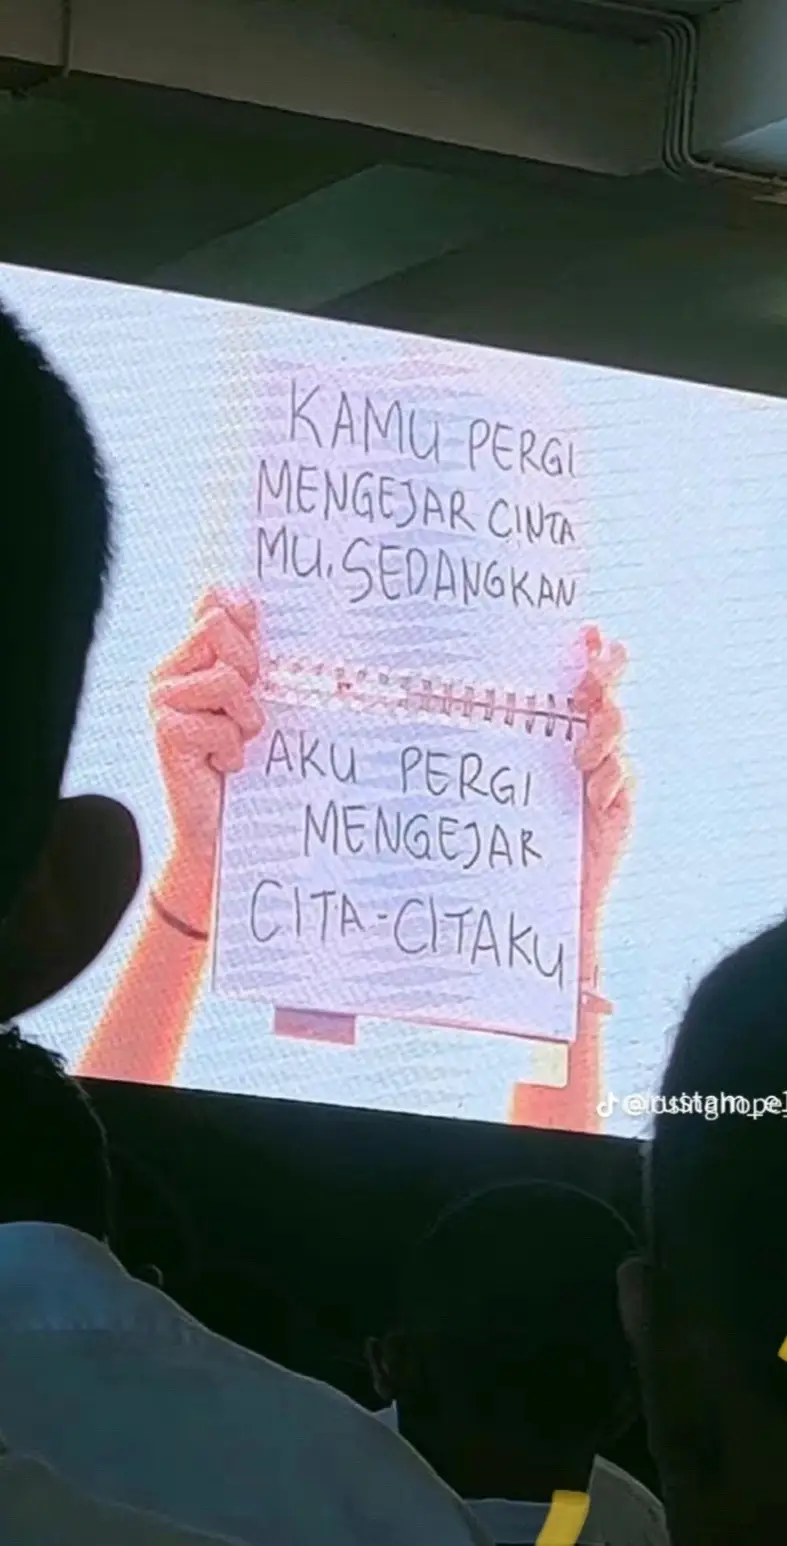 KAMU PERGI
MENGEJAR CINTA
MU. SEDANGKAN
AKU PERGI
MENGEJAR
CITA-CITAKU